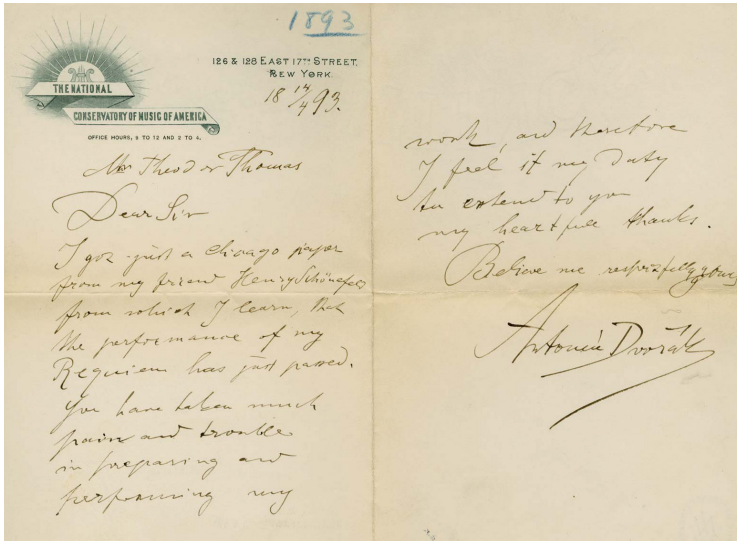 1893
THE NATIONAL
CONSERVATORY OF MUSIC OF AMERICA
OFFICE HOURS, 9 TO 12 AND 2 TO 4.
126 & 128 EAST 17TH STREET,
NEW YORK.
18 14/4 93.
Mr Theodor Thomas
Dear Sir
I got just a chicago paper
from my friend Henry Schönefeld
from which I learn, that
the performance of my
Requiem has just passed.
You have taken much
pain and trouble
in preparing and
performing my
work, and therefore
I feel it my Duty
to extend to you
my heartfull thanks.
Believe me respectfully yours
Antonín Dvořák